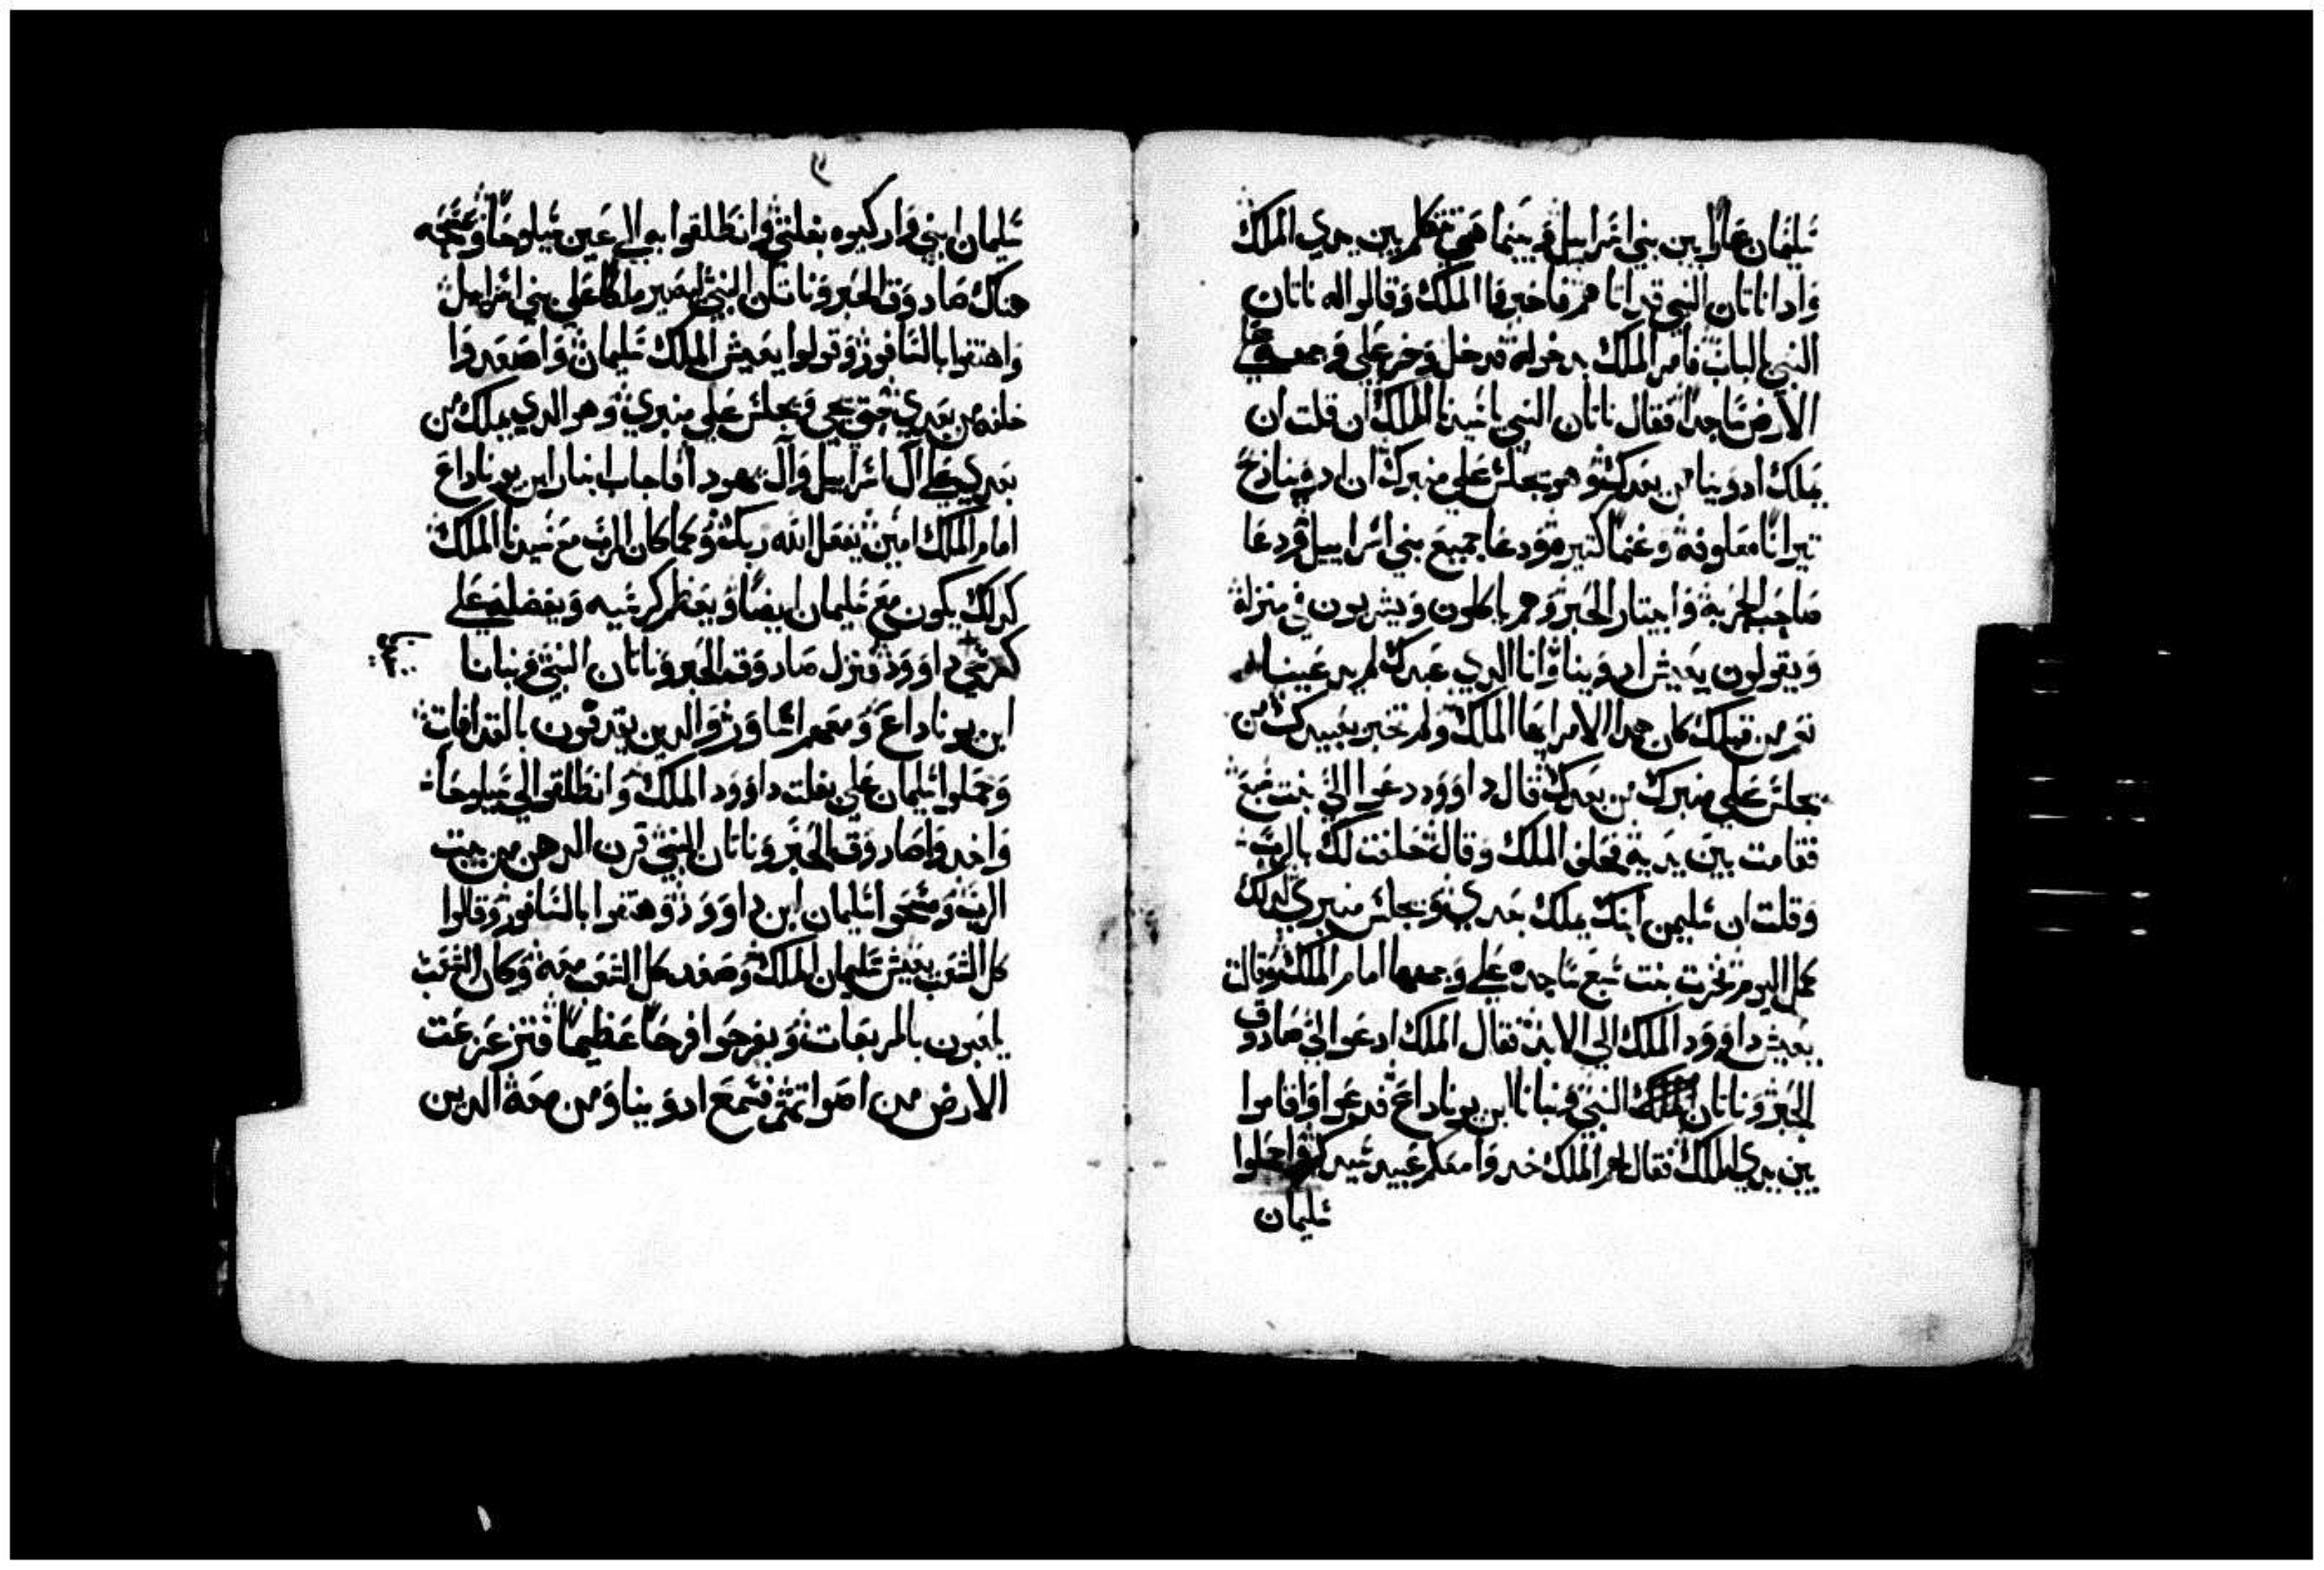 سليمان عارا بين بني اسراييل فبينما هي تتكلم بين يدي الملك
وادا ناتان النبي قد اتاهم فاخبروا الملك وقالوا له ناتان
النبي بالباب فامر الملك بدخوله فدخل وخر علي وجهه علي
الارض ساجدا فقال ناتان النبي يا سيدنا الملك ان قلت ان
يملك ادونيا من بعدك وهو يجلس علي منبرك ان ادونيا ذبح
تيرانا معلوفه وغنما كتيره ودعا جميع بني اسراييل ودعا
صاحب الحربه وابيتار الحبر وهم ياكلون ويشربون في منزله
ويقولون يعيش ادونيا وانا الدي عبدك لم يدعينا
نعم من قبلك كان هدا الامر ايها الملك ولم تخبر بعبيدك من
يجلس علي منبرك من بعدك قال داوود دعوا الي بنت سبع
فقامت بين يديه فحلف الملك وقال حلفت لك بالرب
وقلت ان سليمن ابنك يملك بعدي ويجلس منبري لدلك
عمل اليوم فخرت بنت سبع ساجده علي وجهها امام الملك وقالت
يعيش داوود الملك الي الابد فقال الملك ادعوا الي صادوق
الحبر وناتان النبي وبنانا ابن يوناداع فدعوا وقاموا
بين يدي الملك فقال لهم الملك خدوا معكم عبيد سيدكم واحملوا
سليمان
سليمان ابني واركبوه بغلتي وانطلقوا به الي عين سيلوحا ومسحه
هناك صادوق الحبر وناتان النبي ليصير ملكا علي بني اسراييل
واهتفوا بالسافور وقولوا يعيش الملك سليمان واصعدوا
خلفه من بعدي حتي يجي ويجلس علي منبري وهو الدي يملك من
بعدي علي ال اسراييل وال يهودا فاجاب ابنار ابن يوناداع
امام الملك امين يفعل الله ربك وكما كان الرب مع سيدنا الملك
كدلك يكون مع سليمان ايضا ويعظم كرسيه ويفضله علي
كرسي داوود فنزل صادوق الحبر وناتان النبي وبنانا
ابن يوناداع ومعهم اساور والدين يقدفون بالقدافات
وحملوا سليمان علي بغلت داوود الملك وانطلقوا الي سيلوحا
واخدوا صادوق الحبر وناتان النبي قرن الدهن من بيت
الرب ومسحوا سليمان ابن داوود وهتفوا بالسافور وقالوا
كل الشعب يعيش سليمان الملك وصعد كل الشعب معه وكان الشعب
يلعبون بالمربعات ويفرحوا فرحا عظيما فتزعزعت
الارض من اصواتهم فسمع ادونيا ومن معه الدين